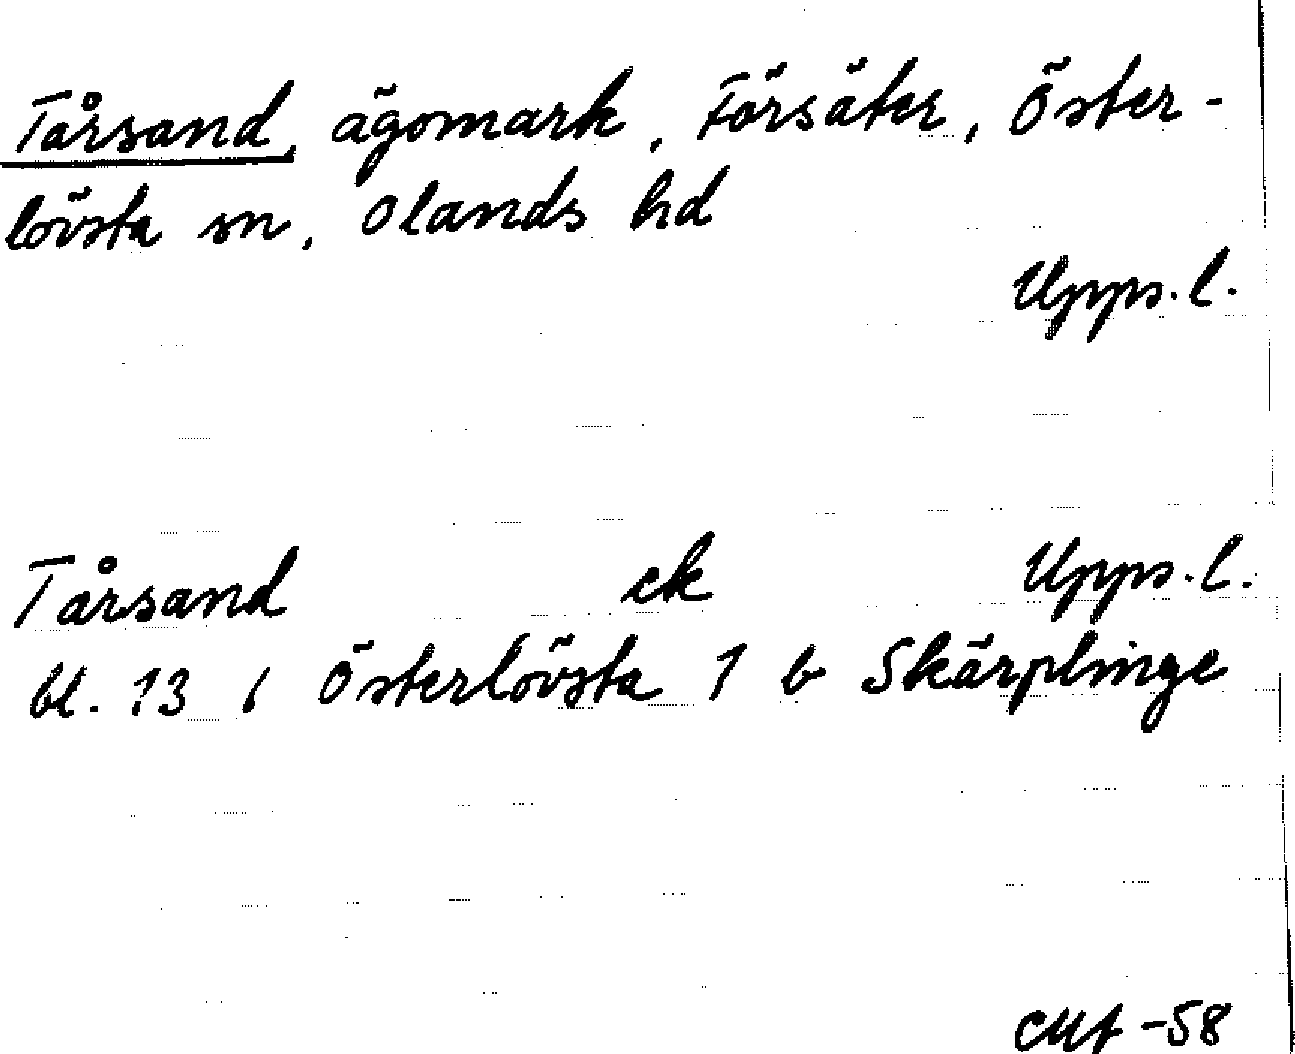 Tårsand, ägomark, Försäter, Öster-
lövsta sn, Olands hd
Upps. l.
Tårsand ek Upps. l.
bl. 13 i Österlövsta 1 b Skärplinge
-58